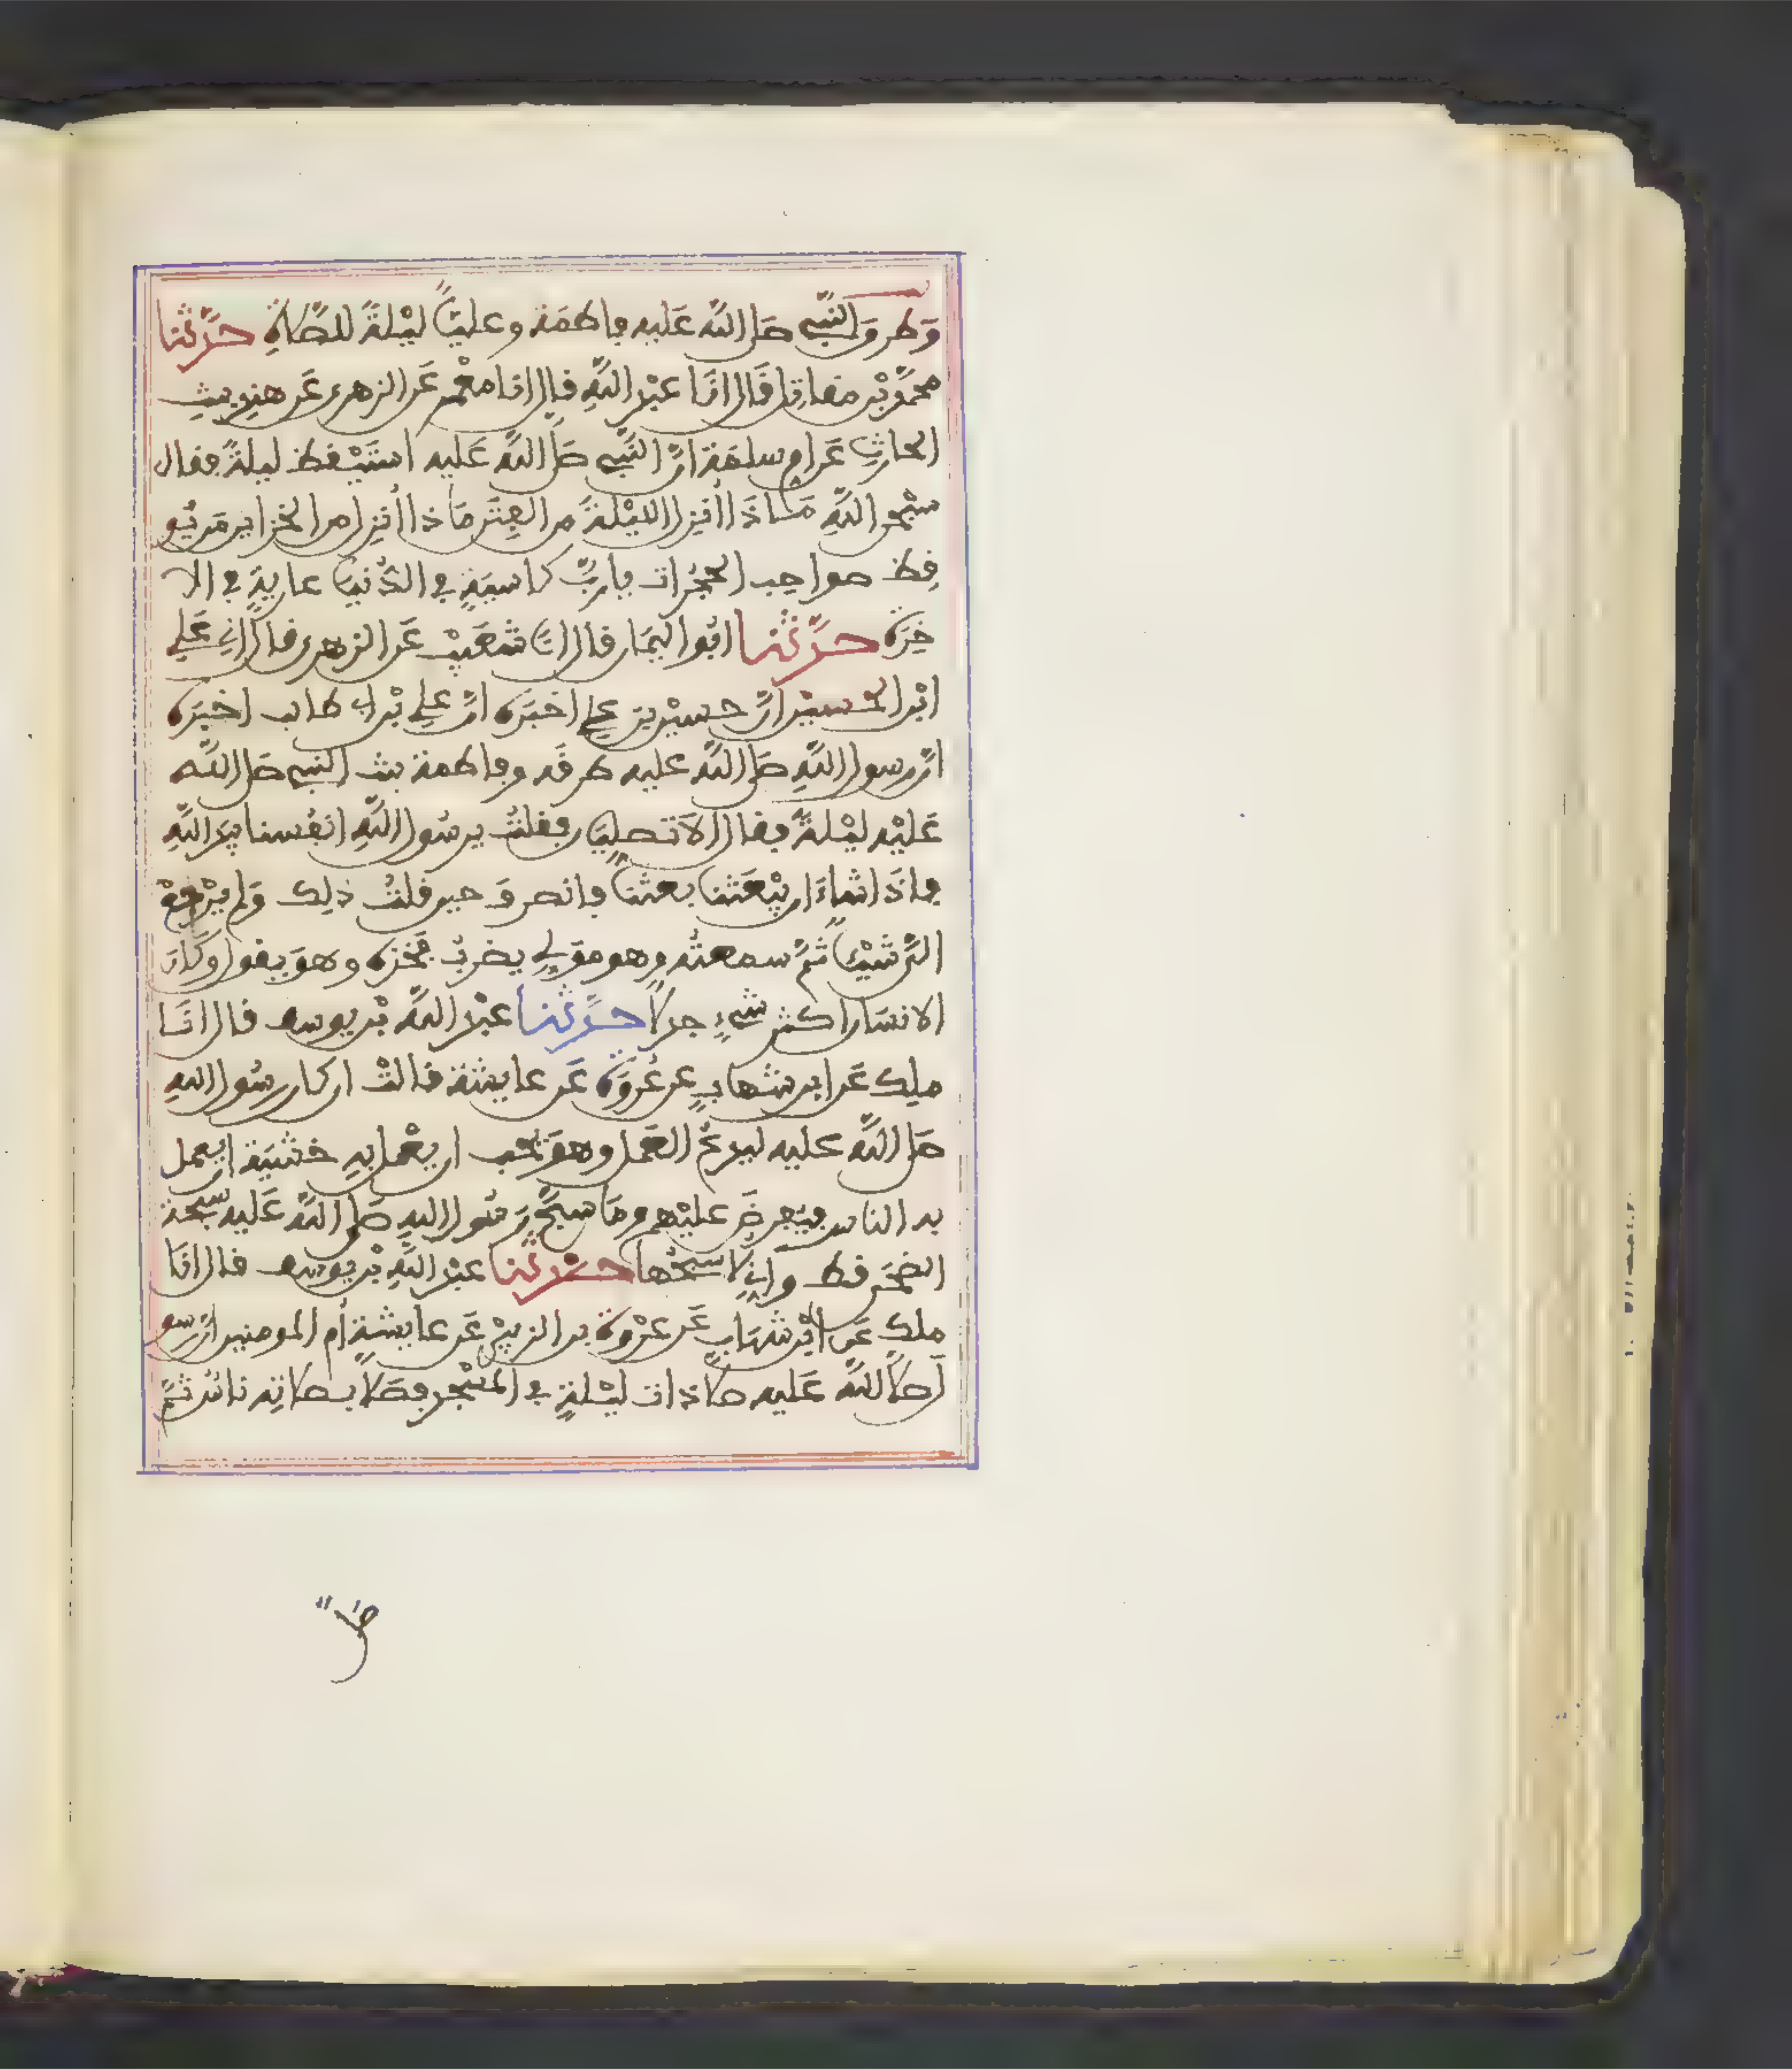 وَطَرَقَ النَّبِيُّ صَلَّى اللَّهُ عَلَيْهِ فَاطِمَةَ وَعَلِيًّا لَيْلَةً لِلصَّلَاةِ حَدَّثَنَا
محمد بْنُ مقاتل قَالَ انَا عَبْدُ اللَّهِ قال انا مَعْمَر عَنِ الزهري عَن هندٍ بنتِ
الحارثِ عَن ام سلمَة انَّ النَّبِي صَلَّى اللَّهُ عَليه اسْتَيْقظ ليلةً فقال
سبْحن اللَّهِ مَاذَا أُنْزِلَ اللَّيْلَةَ من الفِتَن مَاذا أُنْزِلَ من الخزاين مَن يُّو
قِظ صواحِب الحُجُرات يا رُبّ كاسيَةٍ في الدُّنيَا عاريَةٍ في الا
خِرَة حدَّثنا ابُو اليَمَان قال انَا شعَيْب عَن الزهري قال اني عَلي
ابْن الحسين انَّ حسيْن بن علي اخبَرَه انَّ علي بْن ابي طالب اخبَرَه
انَّ رسول اللَّهِ صَلَّى اللَّهُ عليه طرقَه وفاطمة بنت النبي صَلَّى اللَّه
عَلَيْه ليْلةً فقال ألَا تصلِيَان فقلتُ يرسُول اللَّهِ انفُسنا بيَد اللَّهِ
فاذَا شاءَ ان يبْعَثنا بعثنا فانصرفَ حين قلتُ ذلِك وَلم يَرْجِعْ
اليَّ شيْئًا ثمَّ سمعتُه وهو موَلٍّ يضربُ فَخذه وهوَ يقول وكَانَ
الانسَان اكثر شيءٍ جدلًا حدَّثنا عبْد اللَّه بْن يوسف قال انَا
ملِك عَن ابن شهابٍ عن عُرْوَة عَن عايشة قالتْ ان كان رسُول اللهِ
صَلَّى اللَّه عليه ليدَعُ العَمل وهوَ يحب ان يعْمل بهِ خشْيَة ان يعمل
به الناس فيُفرضَ عليْهم ومَا سبَّح رَسُول اللهِ صَلَّى اللَّهُ عَليه سبحة
الضحَى قط وانِّي لَاسبّحُها حدّثنا عبْد اللَّهِ بْن يوسف قال انَا
ملك عَن ابْن شهَاب عَن عرْوة بن الزبيْر عَن عايشة أم المومنين انَّ رسو
لَ صلَّى اللَّه عَليه صلَّى ذات ليْلةٍ في المسْجد فصَلَّى بصلاتِه ناسٌ ثمَّ